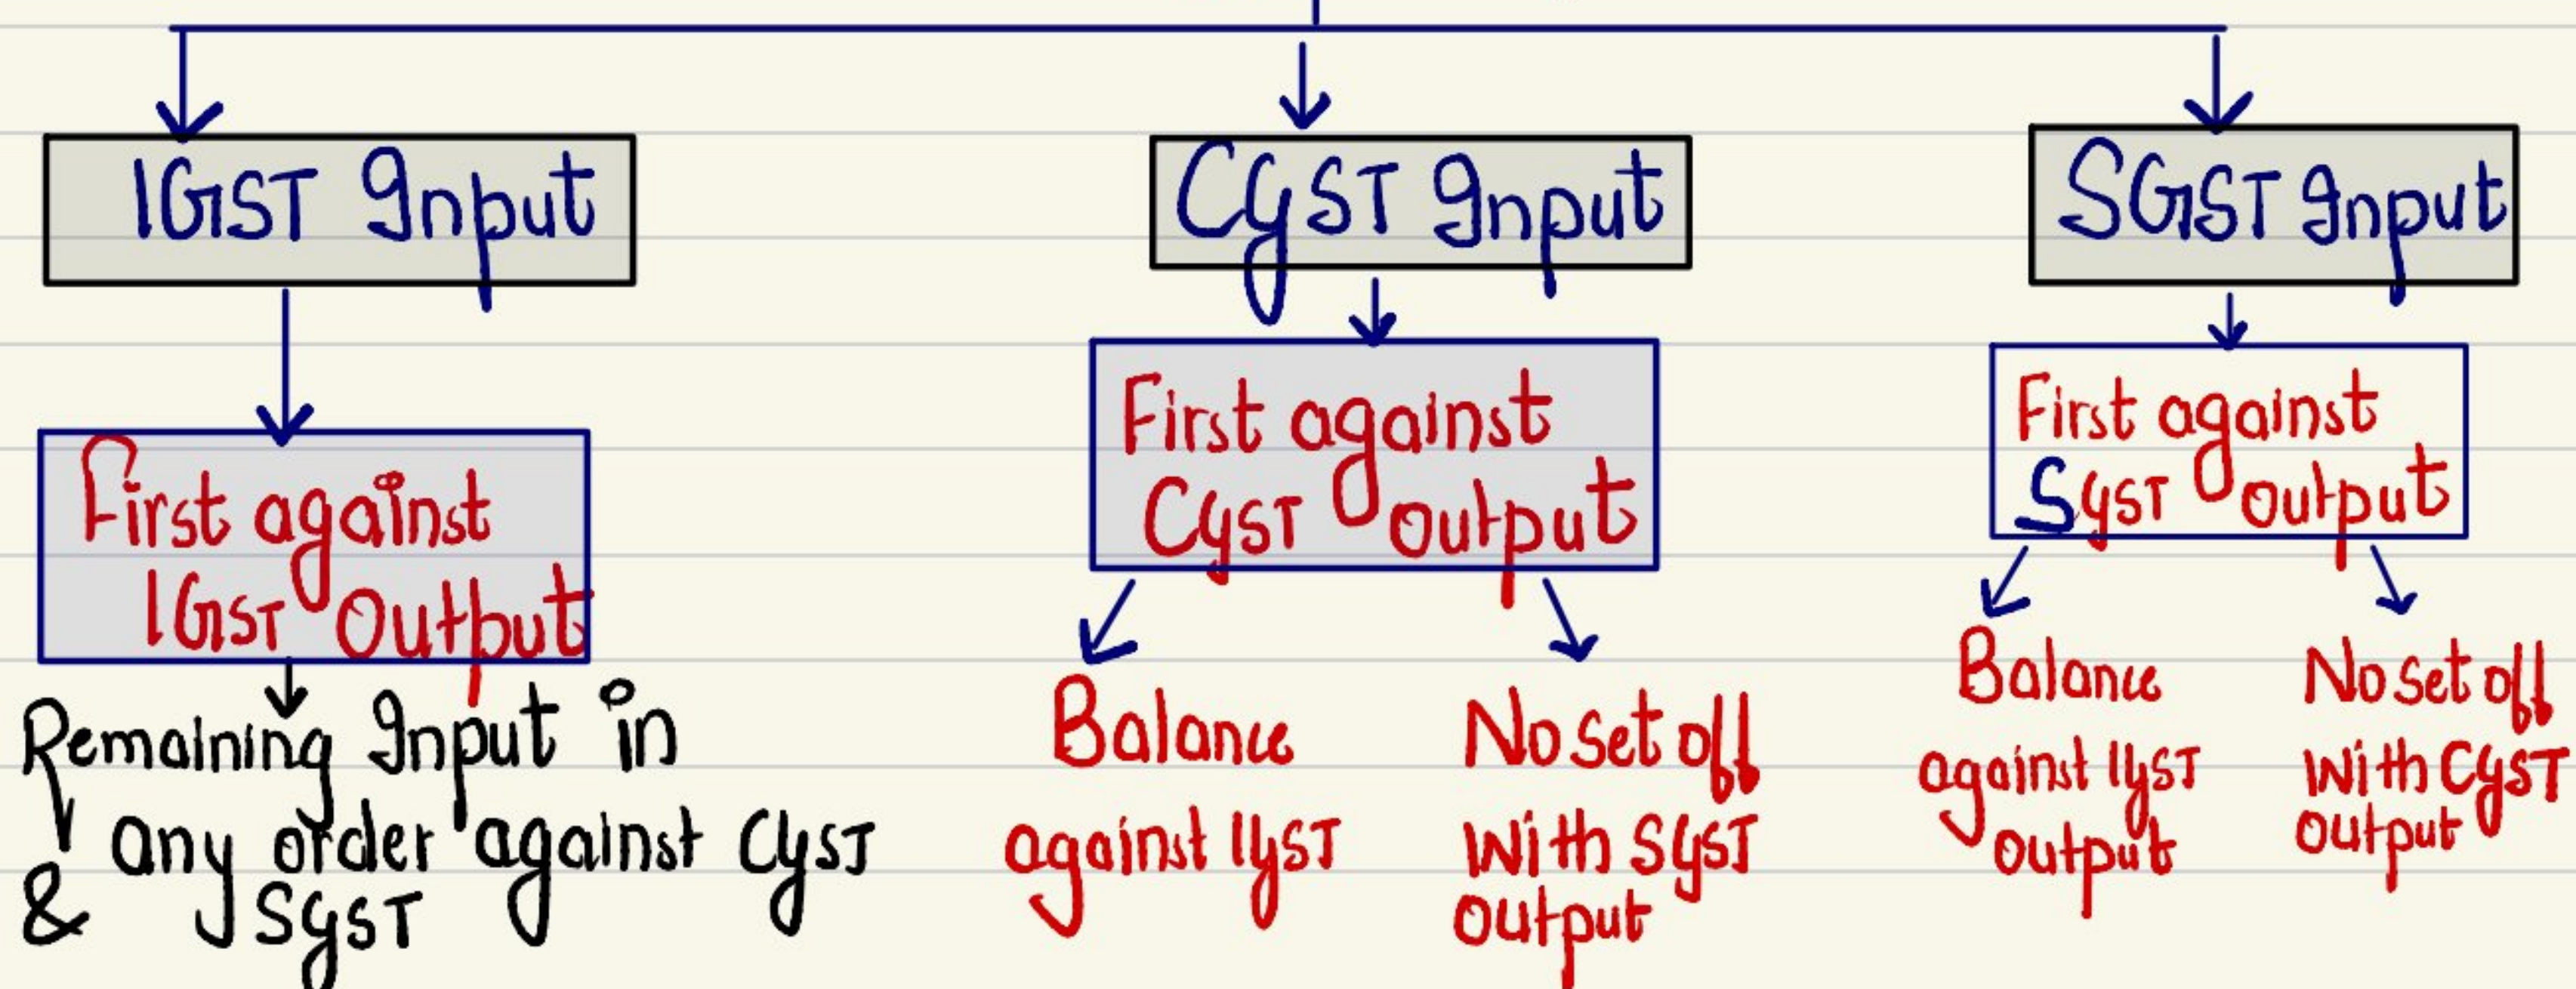 IGST Input
CGST Input
SGST Input
First against
IGST Output
Remaining Input in
any order against CGST
& SGST
First against
CGST Output
Balance
against IGST
No set off
With SGST
Output
First against
SGST Output
Balance
against IGST
Output
No set off
With CGST
Output